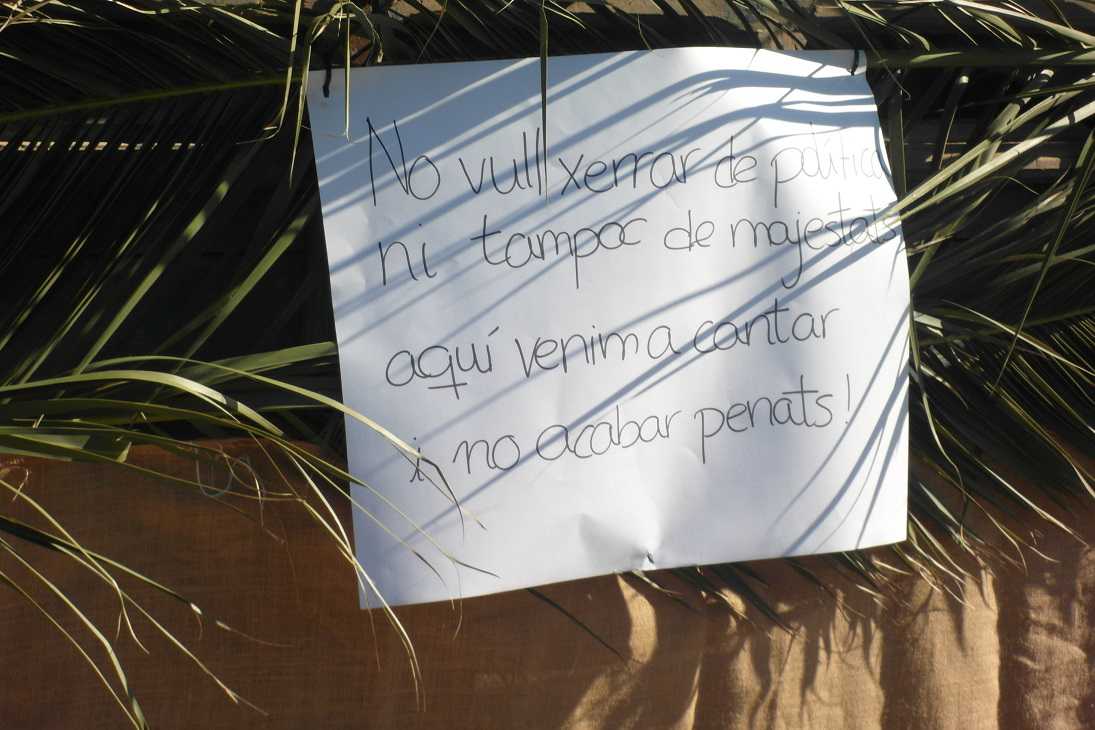 No vull xerrar de política
ni tampoc de majestats,
aquí venim a cantar
i no acabar penats!